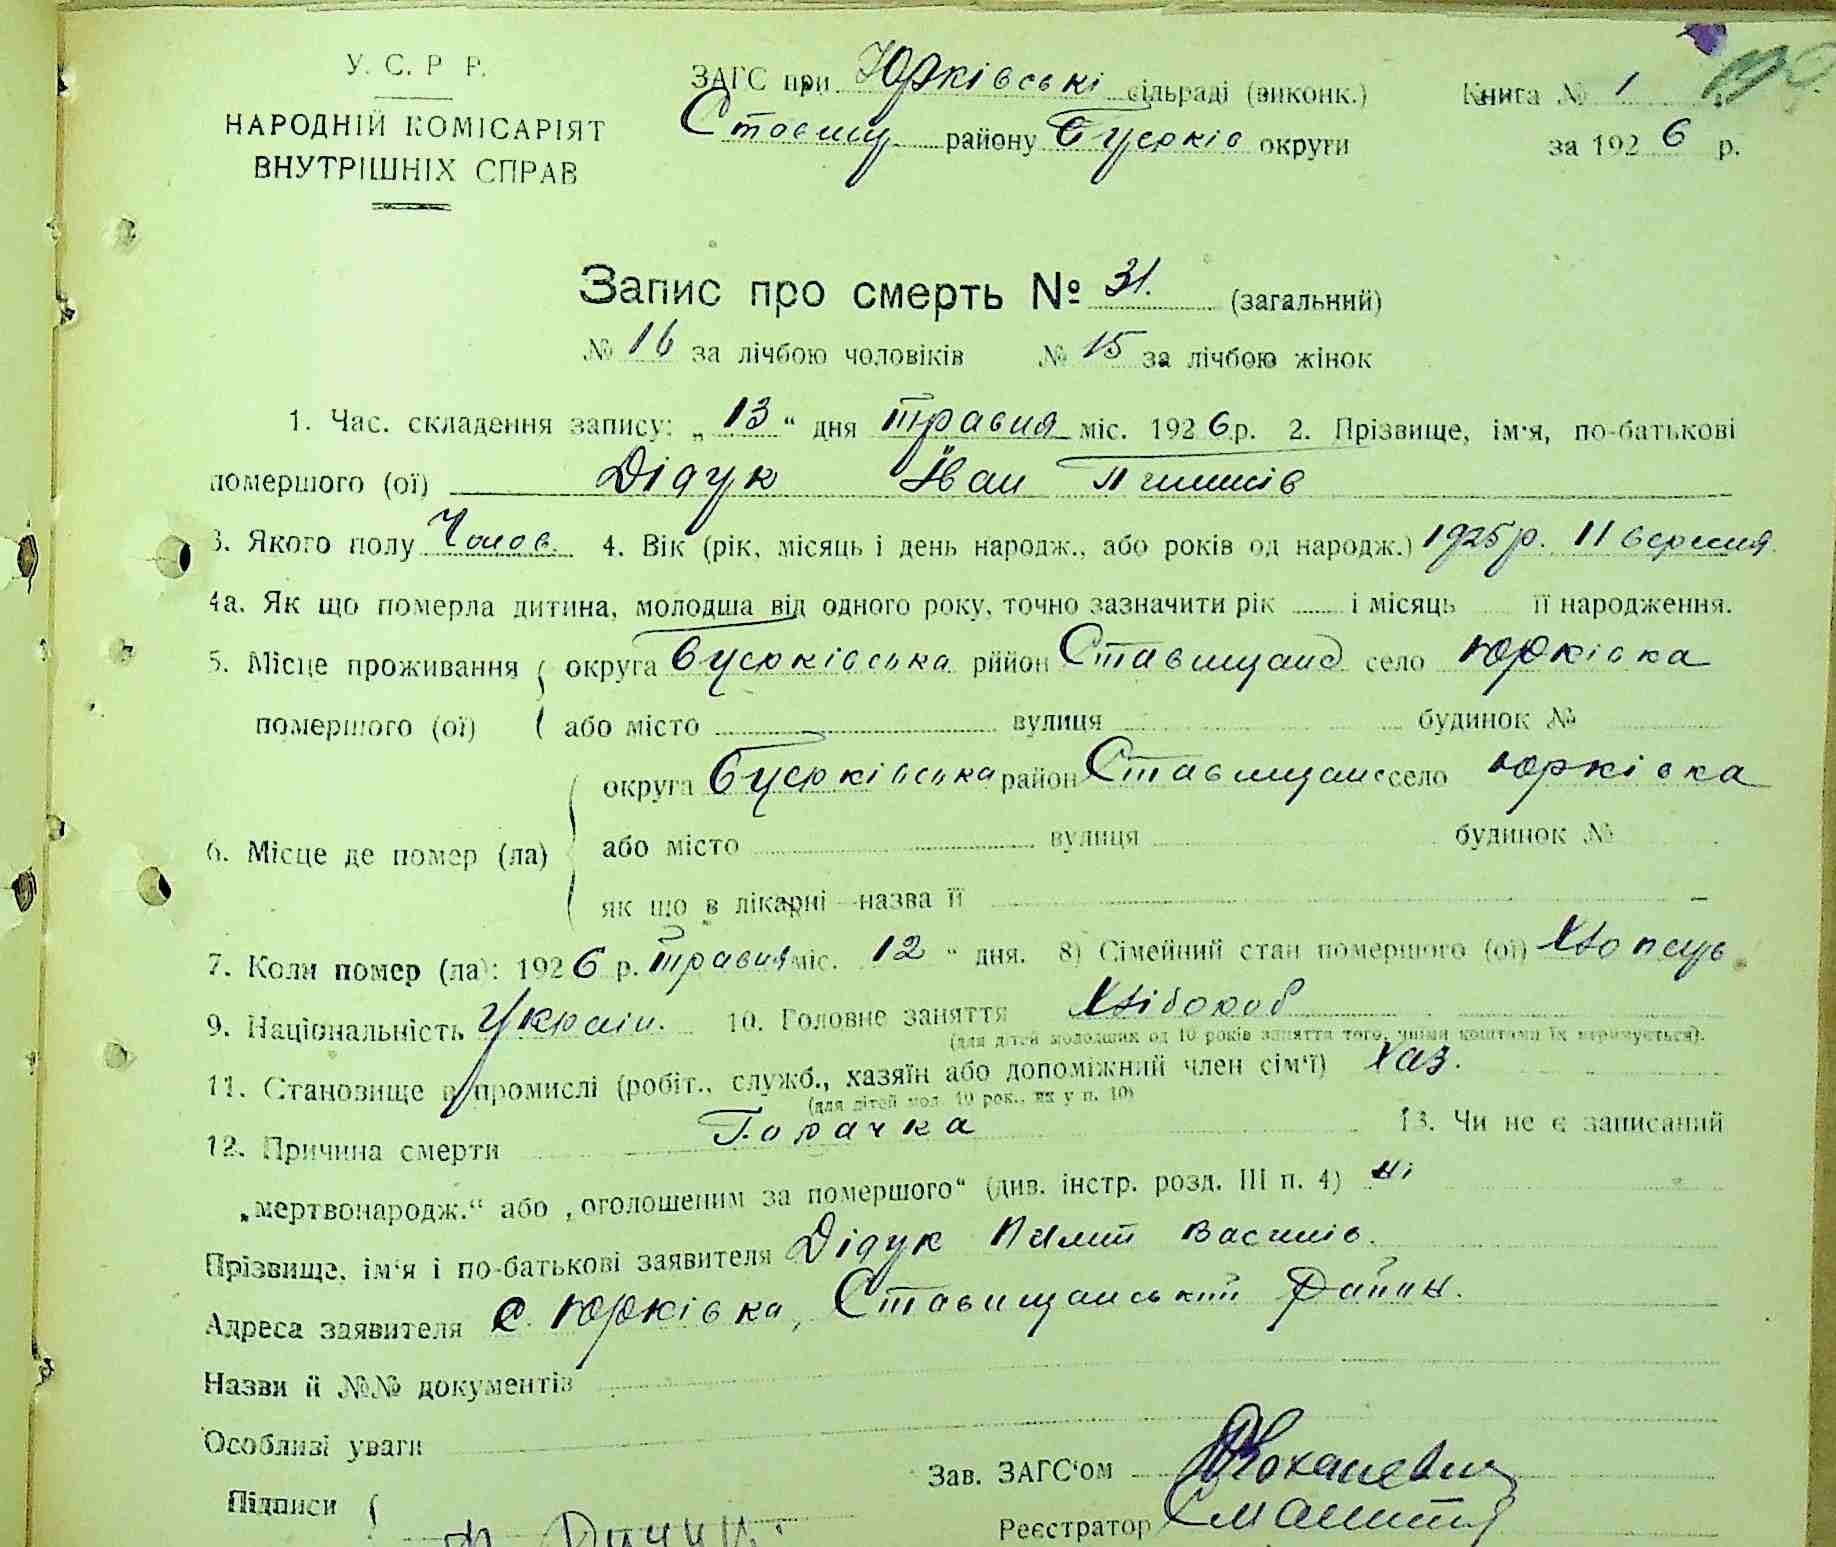 У. С. Р. Р.
НАРОДНІЙ КОМІСАРІЯТ
ВНУТРІШНІХ СПРАВ
ЗАГС при Юрківські сільраді (виконк.)
Ставищ району Білоцерків округи
Книга № 1
за 1926 р.
Запис про смерть № 31. (загальний)
№ 16 за лічбою чоловіків № 15 за лічбою жінок
1. Час. складення запису: „13“ дня травня міс. 1926 р. 2. Прізвище, ім'я, по-батькові
помершого (ої) Дідук Іван
3. Якого полу Чолов. 4. Вік (рік, місяць і день народж., або років од народж.) 1925 р. 11 вересня
4а. Як що померла дитина, молодша від одного року, точно зазначити рік і місяць її народження.
5. Місце проживання округа район Ставищанс село Юрківка
помершого (ої) або місто вулиця будинок №
округа район Ставищанс село Юрківка
6. Місце де помер (ла) або місто вулиця будинок №
як що в лікарні—назва її —
7. Коли помер (ла): 1926 р. травня міс. 12 “ дня. 8) Сімейний стан помершого (ої) Хлопець
9. Національність Україн. 10. Головне заняття Хлібороб
(для дітей молодших од 10 років заняття того, чиїми коштами їх утримується).
11. Становище в промислі (робіт., служб., хазяїн або допоміжний член сім'ї) Хаз.
(для дітей мол. 10 рок., як у п. 10)
12. Причина смерти Горачка 13. Чи не є записаний
„мертвонародж.“ або „оголошеним за помершого“ (див. інстр. розд. III п. 4) ні
Прізвище, ім'я і по-батькові заявителя Дідук Василів.
Адреса заявителя с. Юрківка, Ставищанський Район.
Назви й №№ документів
Особливі уваги
Зав. ЗАГС'ом
Підписи
Реєстратор